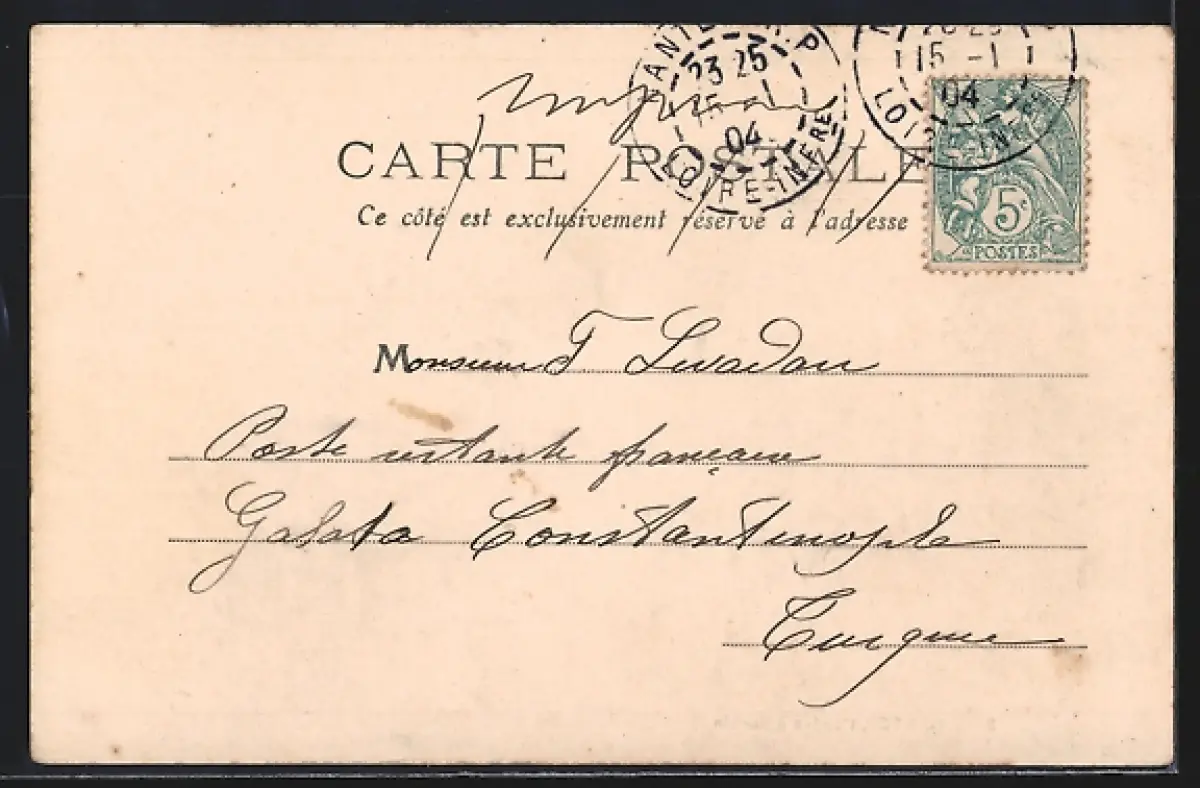 NANTES
23 25
15 -1
04
LOIRE-INFRE
15 -1
04
LOIRE-INFRE
CARTE POSTALE
Ce côté est exclusivement réservé à l'adresse
5c
POSTES
Monsieur F.
Poste restante française
Galata Constantinople
Turquie